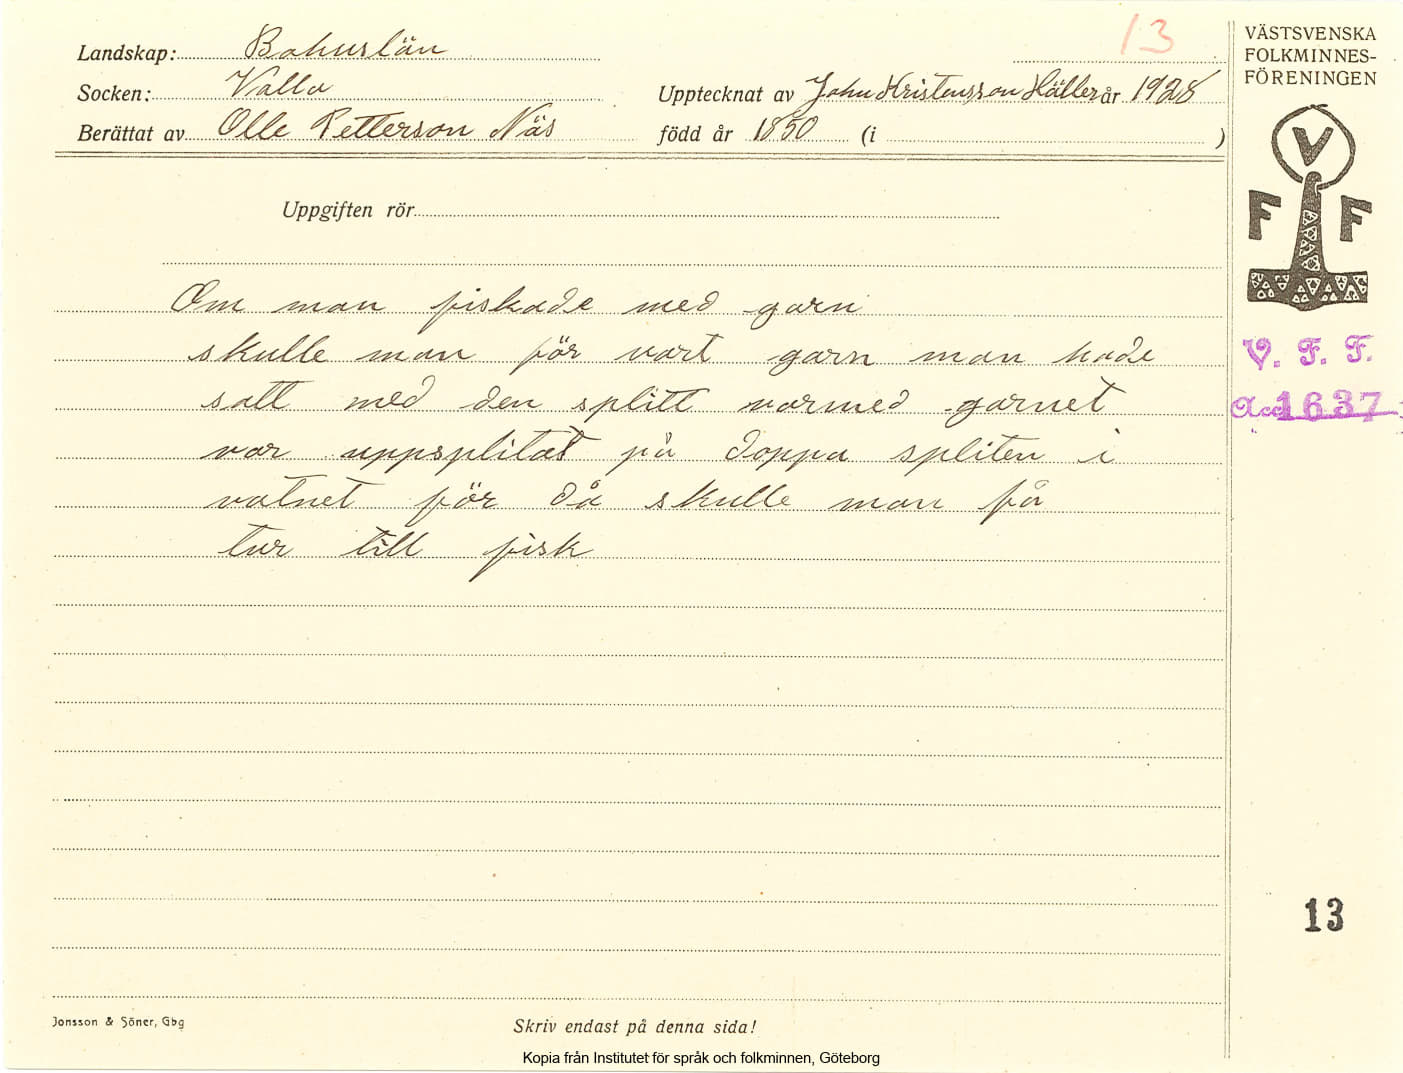 13
Landskap: Bohuslän
Socken: Valla
Upptecknat av John Kristensson Häller år 1928
Berättat av Olle Petterson Näs
född år 1850 (i )
Uppgiften rör
Om man fiskade med garn
skulle man för vart garn man hade
satt med den splitt varmed garnet
var uppsplitat på doppa spliten i
vatnet för då skulle man få
tur till fisk
VÄSTSVENSKA
FOLKMINNES-
FÖRENINGEN
V
F F
V. F. F.
Acc 1637
13
Jonsson & Söner, Gbg
Skriv endast på denna sida!
Kopia från Institutet för språk och folkminnen, Göteborg